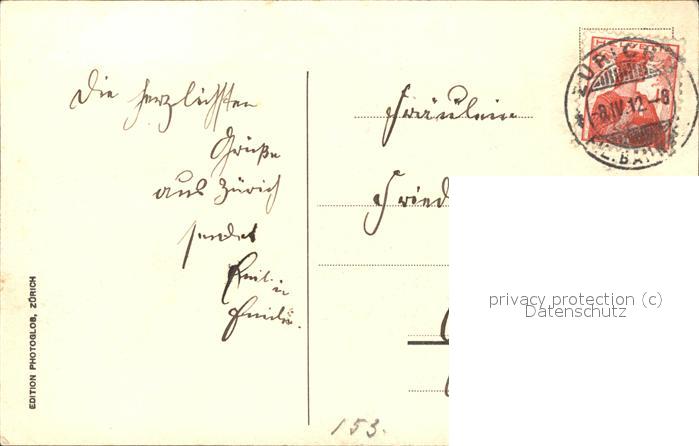 Die herzlichsten
Grüße
aus Zürich
sendet
Emil
Fräulein
Fried
ZÜRICH
-8.IV.12.-8
FIL. BANK
HELVETIA
EDITION PHOTOGLOB, ZÜRICH
153.
privacy protection (c)
Datenschutz